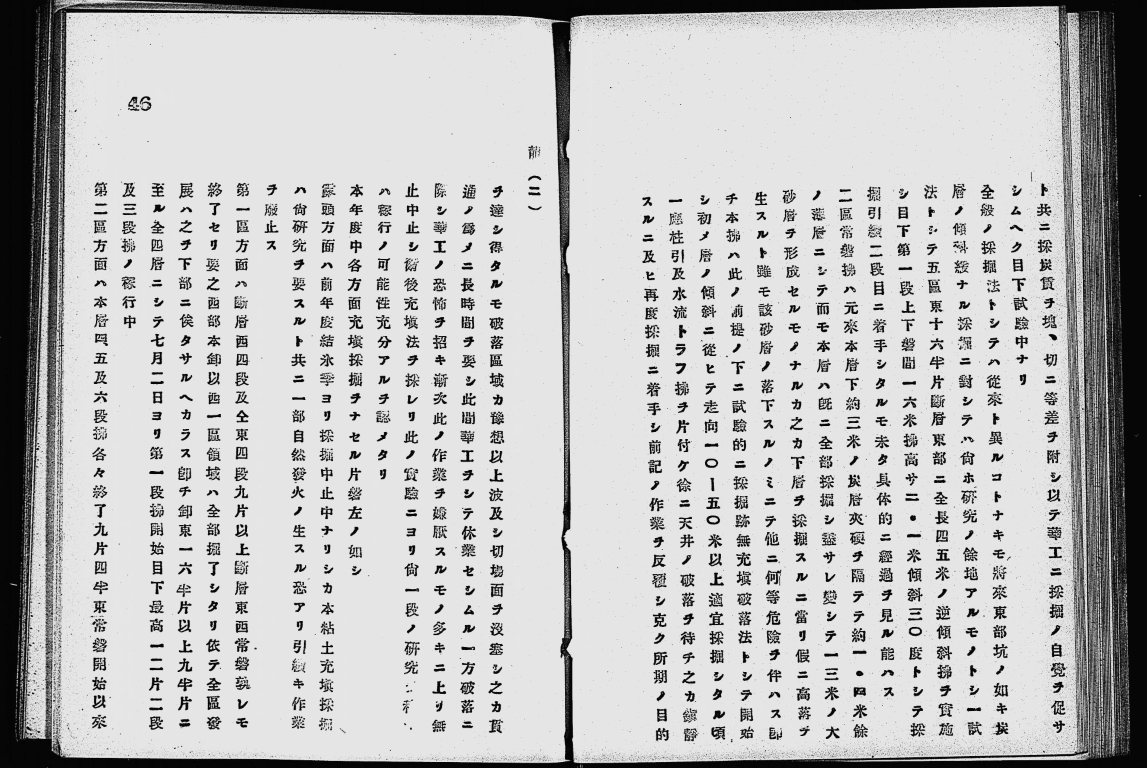 ト共ニ採炭賃ヲ塊、切ニ等差ヲ附シ以テ華工ニ採掘ノ自覺ヲ促サ
シムヘク目下試驗中ナリ
全般ノ採掘法トシテハ從來ト異ルコトナキモ將來東部坑ノ如キ炭
層ノ傾斜緩ナル採掘ニ對シテハ尙ホ硏究ノ餘地アルモノトシ一試
法トシテ五區東十六半片斷層東部ニ全長四五米ノ逆傾斜拂ヲ實施
シ目下第一段上下磐間一六米拂高サ二・一米傾斜三〇度トシテ採
掘引續二段目ニ着手シタルモ未タ具体的ニ經過ヲ見ル能ハス
二區常磐拂ハ元來本層下約三米ノ炭層夾硬ヲ隔テテ約一・四米餘
ノ薄層ニシテ而モ本層ハ旣ニ全部採掘シ盡サレ變シテ一三米ノ大
砂層ヲ形成セルモノナルカ之カ下層ヲ採掘スルニ當リ假ニ高落ヲ
生スルト雖モ該砂層ノ落下スルノミニテ他ニ何等危險ヲ伴ハス卽
チ本拂ハ此ノ前提ノ下ニ試驗的ニ採掘跡無充塡破落法トシテ開始
シ初メ層ノ傾斜ニ從ヒテ走向一〇―五〇米以上適宜採掘シタル頃
一應柱引及水流トラフ拂ヲ片付ケ徐ニ天井ノ破落ヲ待チ之カ鎭靜
スルニ及ヒ再度採掘ニ着手シ前記ノ作業ヲ反覆シ克ク所期ノ目的
(二)
ヲ達シ得タルモ破落區域カ豫想以上波及シ切場面ヲ沒塞シ之カ貫
通ノ爲メニ長時間ヲ要シ此間華工ヲシテ休業セシムル一方破落ニ
際シ華工ノ恐怖ヲ招キ漸次此ノ作業ヲ嫌厭スルモノ多キニ上リ無
止中止シ爾後充塡法ヲ採レリ此ノ實驗ニヨリ尙一段ノ硏究
ハ稼行ノ可能性充分アルヲ認メタリ
本年度中各方面充塡採掘ヲナセル片磐左ノ如シ
露頭方面ハ前年度結氷季ヨリ採掘中止中ナリシカ本粘土充塡採掘
ハ尙硏究ヲ要スルト共ニ一部自然發火ノ生スル恐アリ引續キ作業
ヲ廢止ス
第一區方面ハ斷層西四段及仝東四段九片以上斷層東西常磐孰レモ
終了セリ要之西部本卸以西一區領域ハ全部掘了シタリ依テ全區發
展ハ之ヲ下部ニ俟タサルヘカラス卽チ卸東一六半片以上九半片ニ
至ル全四層ニシテ七月二日ヨリ第一段拂開始目下最高一二片二段
及三段拂ノ稼行中
第二區方面ハ本層四、五及六段拂各々終了九片四半東常磐開始以來
46